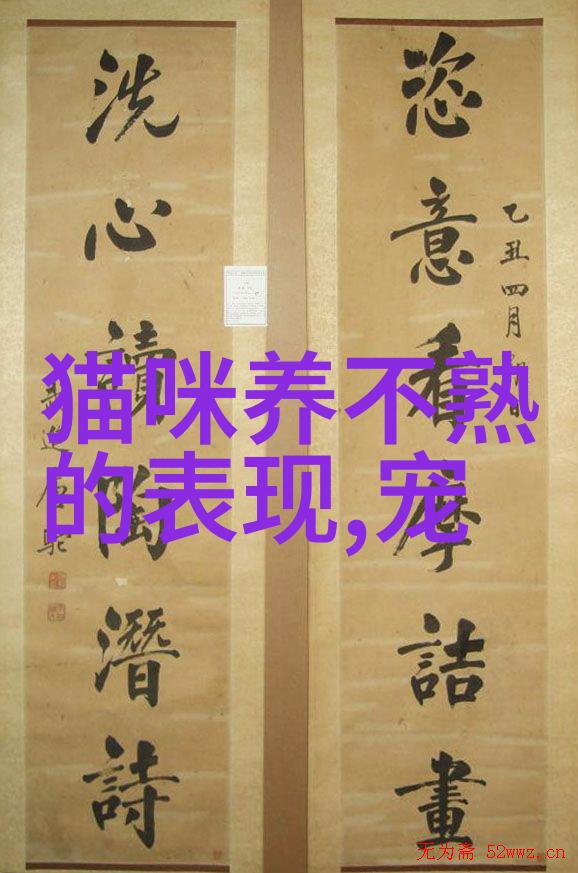 恣意看摩詰畫
乙丑四月
洗心讀陶潛詩
猫咪养不熟
的表现,宠
无为斋 52wwz.cn